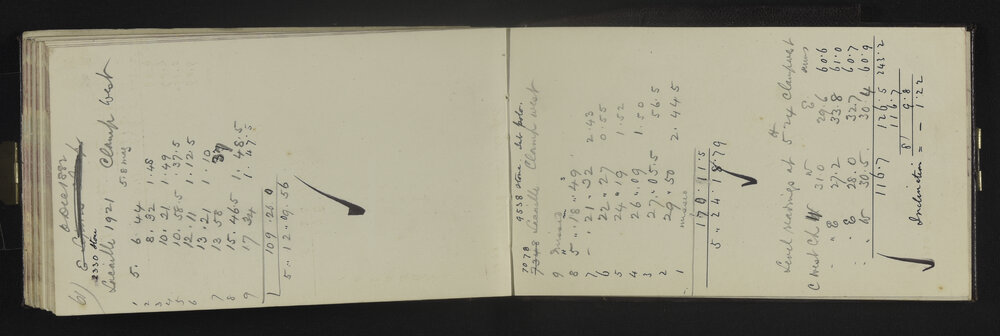 6)
6 Dec 1882
2330 Stone
Lacaille 1921 Clamp West
5.8 mag
1 5. 6. 44
2 8. 32 1. 48
3 10. 21 1. 49
4 10. 58.5 . 37.5
5 12. 11 1. 12.5
6 13. 21 1. 10
7 13 58 37
8 15. 46.5 1. 48.5
9 17 34 1 47.5
109. 26 0
5 . 12. 09. 56
7078 9538 Stone
Lacaille Clamp West
9 missed
8 5 . 18. 49.
7 21. 32 2. 43
6 22. 27 0. 55
5 24. 19 1. 52
4 26. 09 1. 50
3 27. 05.5 56.5
2 29. 50 2. 44.5
1 missed
170. 11.5
5 . 24. 18. 79
Level readings at 5. 24 Clamp west
W E sums
C West Ch W 31.0 29.6 60.6
" E 27.2 33.8 61.0
" E 28.0 32.7 60.7
" W 30.5 30.4 60.9
116.7 126.5 243.2
116.7
8) 9.8
Inclination = - 1.22